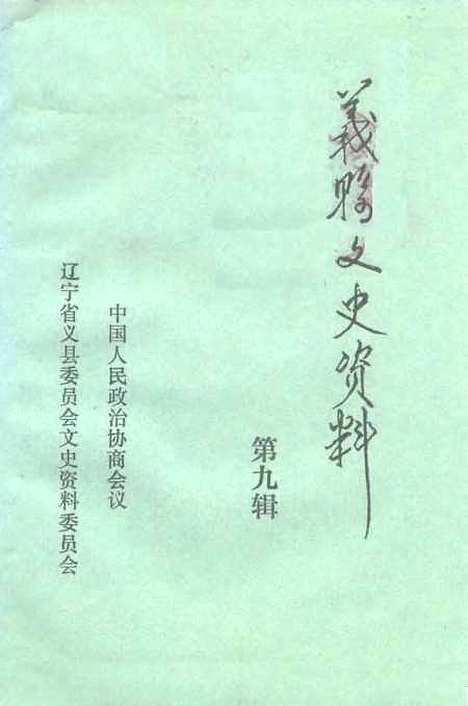 義縣文史资料
第九辑
中国人民政治协商会议
辽宁省义县委员会文史资料委员会